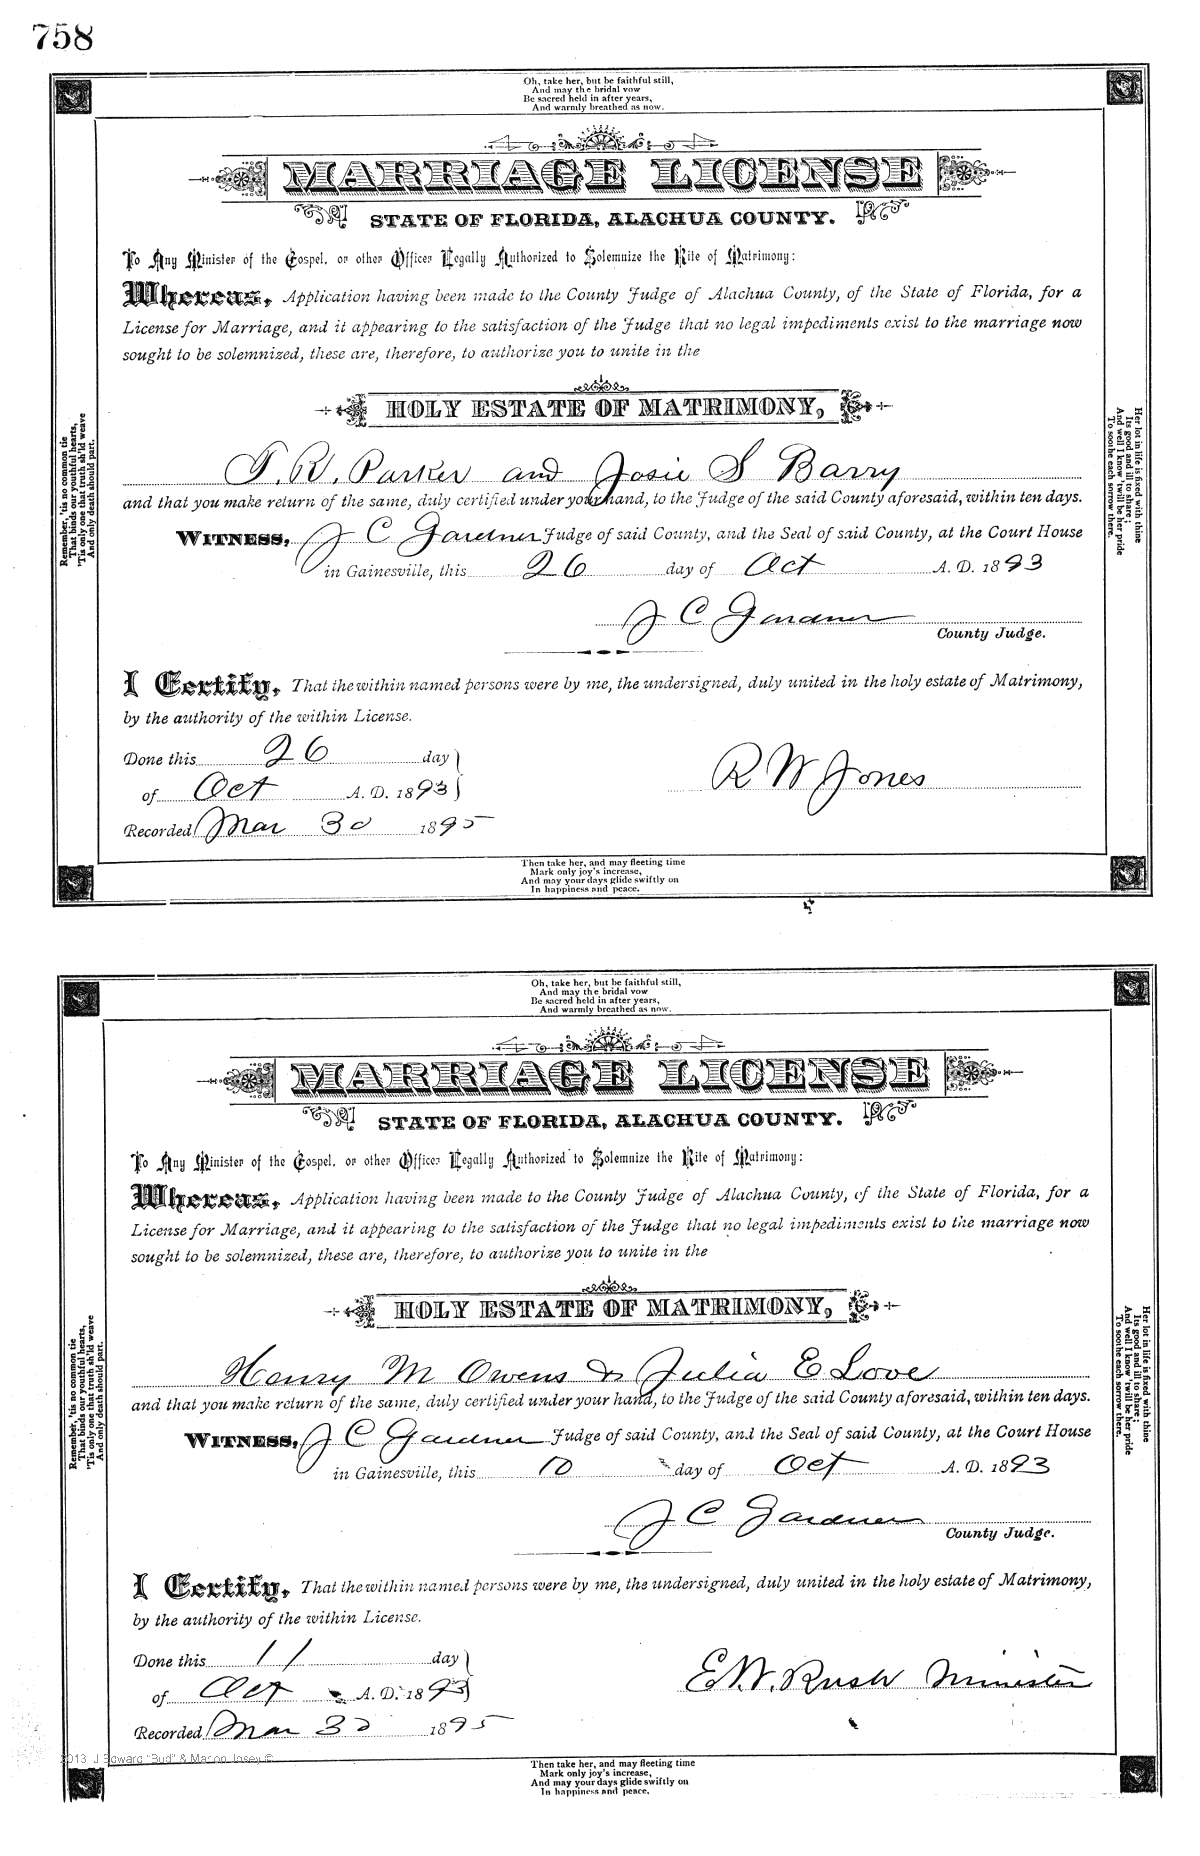 758
Oh, take her, but be faithful still,
And may the bridal vow
Be sacred held in after years,
And warmly breathed as now.
MARRIAGE LICENSE
STATE OF FLORIDA, ALACHUA COUNTY.
To Any Minister of the Gospel, or other Officer Legally Authorized to Solemnize the Rite of Matrimony:
Whereas, Application having been made to the County Judge of Alachua County, of the State of Florida, for a
License for Marriage, and it appearing to the satisfaction of the Judge that no legal impediments exist to the marriage now
sought to be solemnized, these are, therefore, to authorize you to unite in the
HOLY ESTATE OF MATRIMONY,
T. R. Parker and Josie S Barry
and that you make return of the same, duly certified under your hand, to the Judge of the said County aforesaid, within ten days.
WITNESS, J C Gardner Judge of said County, and the Seal of said County, at the Court House
in Gainesville, this 26 day of Oct A. D. 1893
J C Gardner
County Judge.
I Certify, That the within named persons were by me, the undersigned, duly united in the holy estate of Matrimony,
by the authority of the within License.
Done this 26 day
of Oct A. D. 1893
R W Jones
Recorded Mar 30 1895
Remember, 'tis no common tie
That binds our youthful hearts,
'Tis only one that truth sh'ld weave
And only death should part.
Her lot in life is fixed with thine
Its good and ill to share;
And well I know 'twill be her pride
To soothe each sorrow there.
Then take her, and may fleeting time
Mark only joy's increase,
And may your days glide swiftly on
In happiness and peace.
Oh, take her, but be faithful still,
And may the bridal vow
Be sacred held in after years,
And warmly breathed as now.
MARRIAGE LICENSE
STATE OF FLORIDA, ALACHUA COUNTY.
To Any Minister of the Gospel, or other Officer Legally Authorized to Solemnize the Rite of Matrimony:
Whereas, Application having been made to the County Judge of Alachua County, of the State of Florida, for a
License for Marriage, and it appearing to the satisfaction of the Judge that no legal impediments exist to the marriage now
sought to be solemnized, these are, therefore, to authorize you to unite in the
HOLY ESTATE OF MATRIMONY,
Henry M Owens & Julia E Love
and that you make return of the same, duly certified under your hand, to the Judge of the said County aforesaid, within ten days.
WITNESS, J C Gardner Judge of said County, and the Seal of said County, at the Court House
in Gainesville, this 10 day of Oct A. D. 1893
J C Gardner
County Judge.
I Certify, That the within named persons were by me, the undersigned, duly united in the holy estate of Matrimony,
by the authority of the within License.
Done this 11 day
of Oct A. D. 1893
E. W. Rush Minister
Recorded Mar 30 1895
Remember, 'tis no common tie
That binds our youthful hearts,
'Tis only one that truth sh'ld weave
And only death should part.
Her lot in life is fixed with thine
Its good and ill to share;
And well I know 'twill be her pride
To soothe each sorrow there.
2013 J Edward "Bud" & Marion Josey ©
Then take her, and may fleeting time
Mark only joy's increase,
And may your days glide swiftly on
In happiness and peace.